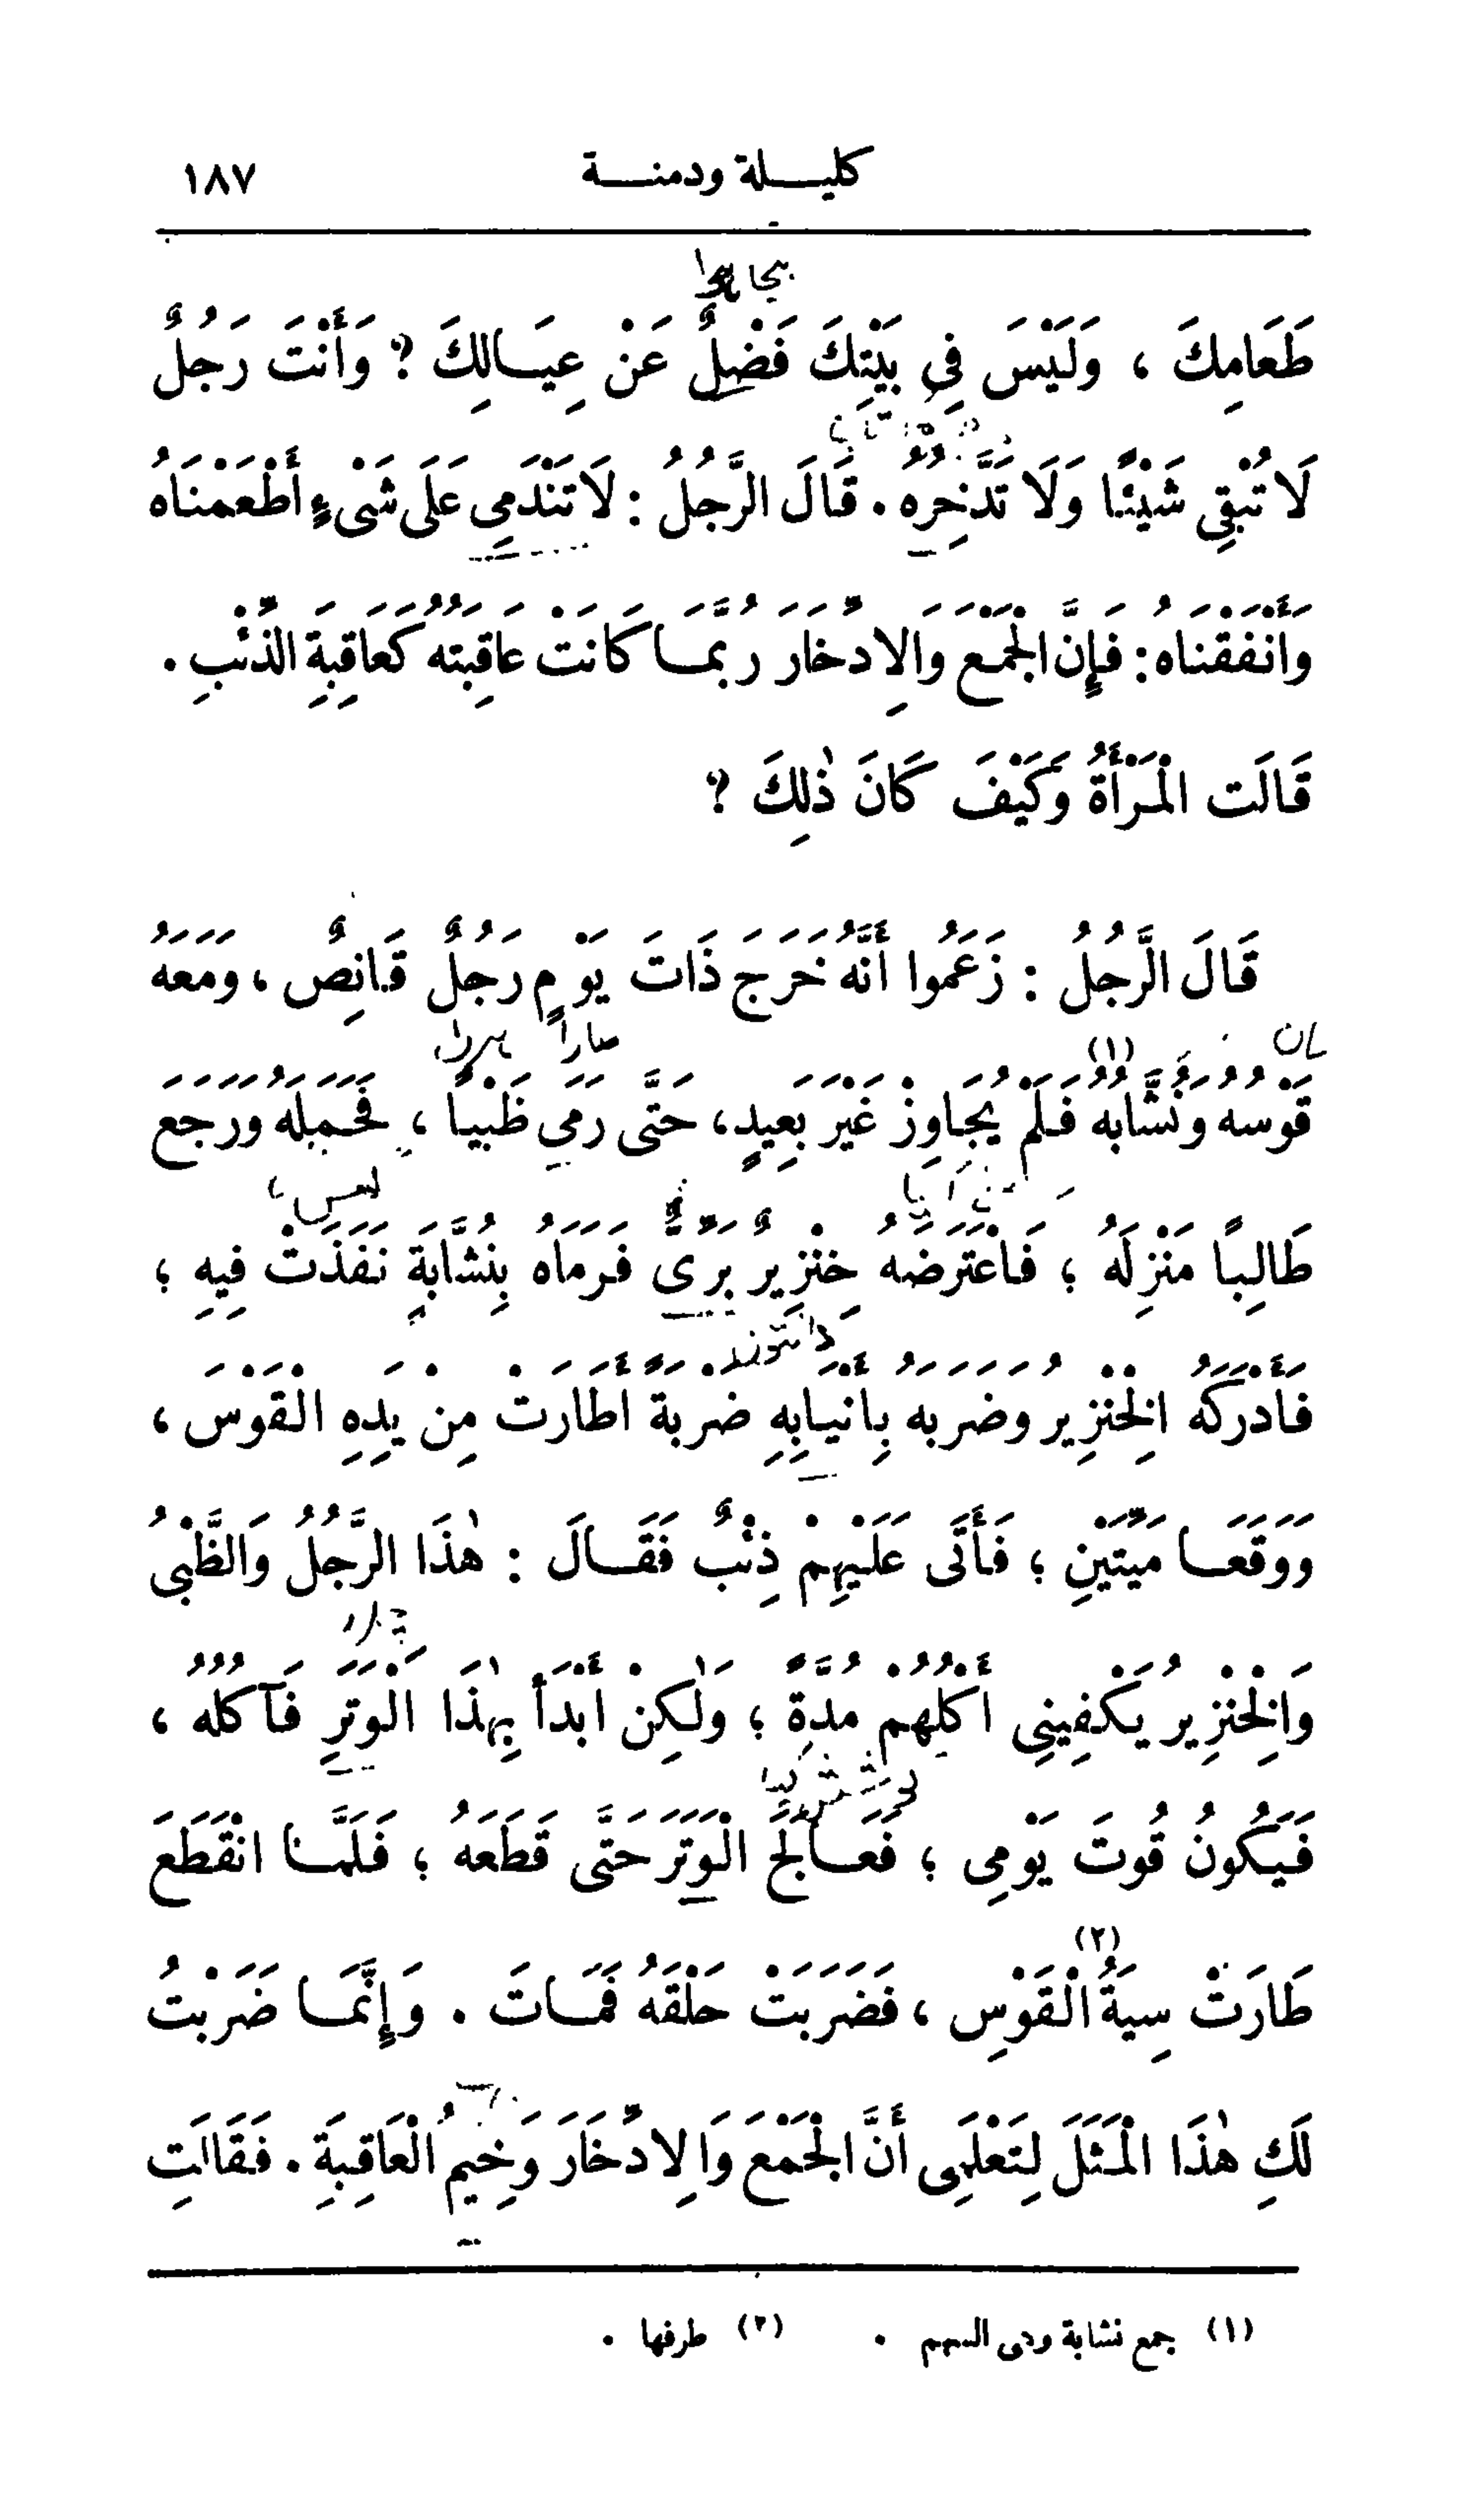 كليلة ودمنة ١٨٧
طَعَامِكَ ، وَلَيْسَ فِي بَيْتِكَ فَضْلٌ عَنْ عِيَالِكَ ؟ وَأَنْتَ رَجُلٌ
لَا تُبْقِي شَيْئًا وَلَا تَدَّخِرُهُ . قَالَ الرَّجُلُ : لَا تَنْدَمِي عَلَى شَىْءٍ أَطْعَمْنَاهُ
وَأَنْفَقْنَاهُ : فَإِنَّ الْجَمْعَ وَالِادِّخَارَ رُبَّمَا كَانَتْ عَاقِبَتُهُ كَعَاقِبَةِ الذِّئْبِ .
قَالَتِ الْمَرْأَةُ وَكَيْفَ كَانَ ذٰلِكَ ؟
قَالَ الرَّجُلُ : زَعَمُوا أَنَّهُ خَرَجَ ذَاتَ يَوْمٍ رَجُلٌ قَانِصٌ ، وَمَعَهُ
قَوْسُهُ وَنُشَّابُهُ (١) فَلَمْ يُجَاوِزْ غَيْرَ بَعِيدٍ ، حَتَّى رَمَى ظَبْيًا ، فَحَمَلَهُ وَرَجَعَ
طَالِبًا مَنْزِلَهُ ؛ فَاعْتَرَضَهُ خِنْزِيرٌ بَرِّىٌّ فَرَمَاهُ بِنُشَّابَةٍ نَفَذَتْ فِيهِ ؛
فَأَدْرَكَهُ الْخِنْزِيرُ وَضَرَبَهُ بِأَنْيَابِهِ ضَرْبَةً أَطَارَتْ مِنْ يَدِهِ الْقَوْسَ ،
وَوَقَعَا مَيِّتَيْنِ ؛ فَأَتَى عَلَيْهِمْ ذِئْبٌ فَقَالَ : هٰذَا الرَّجُلُ وَالظَّبْىُ
وَالْخِنْزِيرُ يَكْفِينِي أَكْلُهُمْ مُدَّةً ؛ وَلٰكِنْ أَبْدَأُ بِهٰذَا الْوَتَرِ فَآكُلُهُ ،
فَيَكُونُ قُوتَ يَوْمِى ؛ فَعَالَجَ الْوَتَرَ حَتَّى قَطَعَهُ ؛ فَلَمَّا انْقَطَعَ
طَارَتْ سِيَةُ (٢) الْقَوْسِ ، فَضَرَبَتْ حَلْقَهُ فَمَاتَ . وَإِنَّمَا ضَرَبْتُ
لَكِ هٰذَا الْمَثَلَ لِتَعْلَمِى أَنَّ الْجَمْعَ وَالِادِّخَارَ وَخِيمُ الْعَاقِبَةِ . فَقَالَتِ
(١) جمع نشابة وهى السهم . (٢) طرفها .